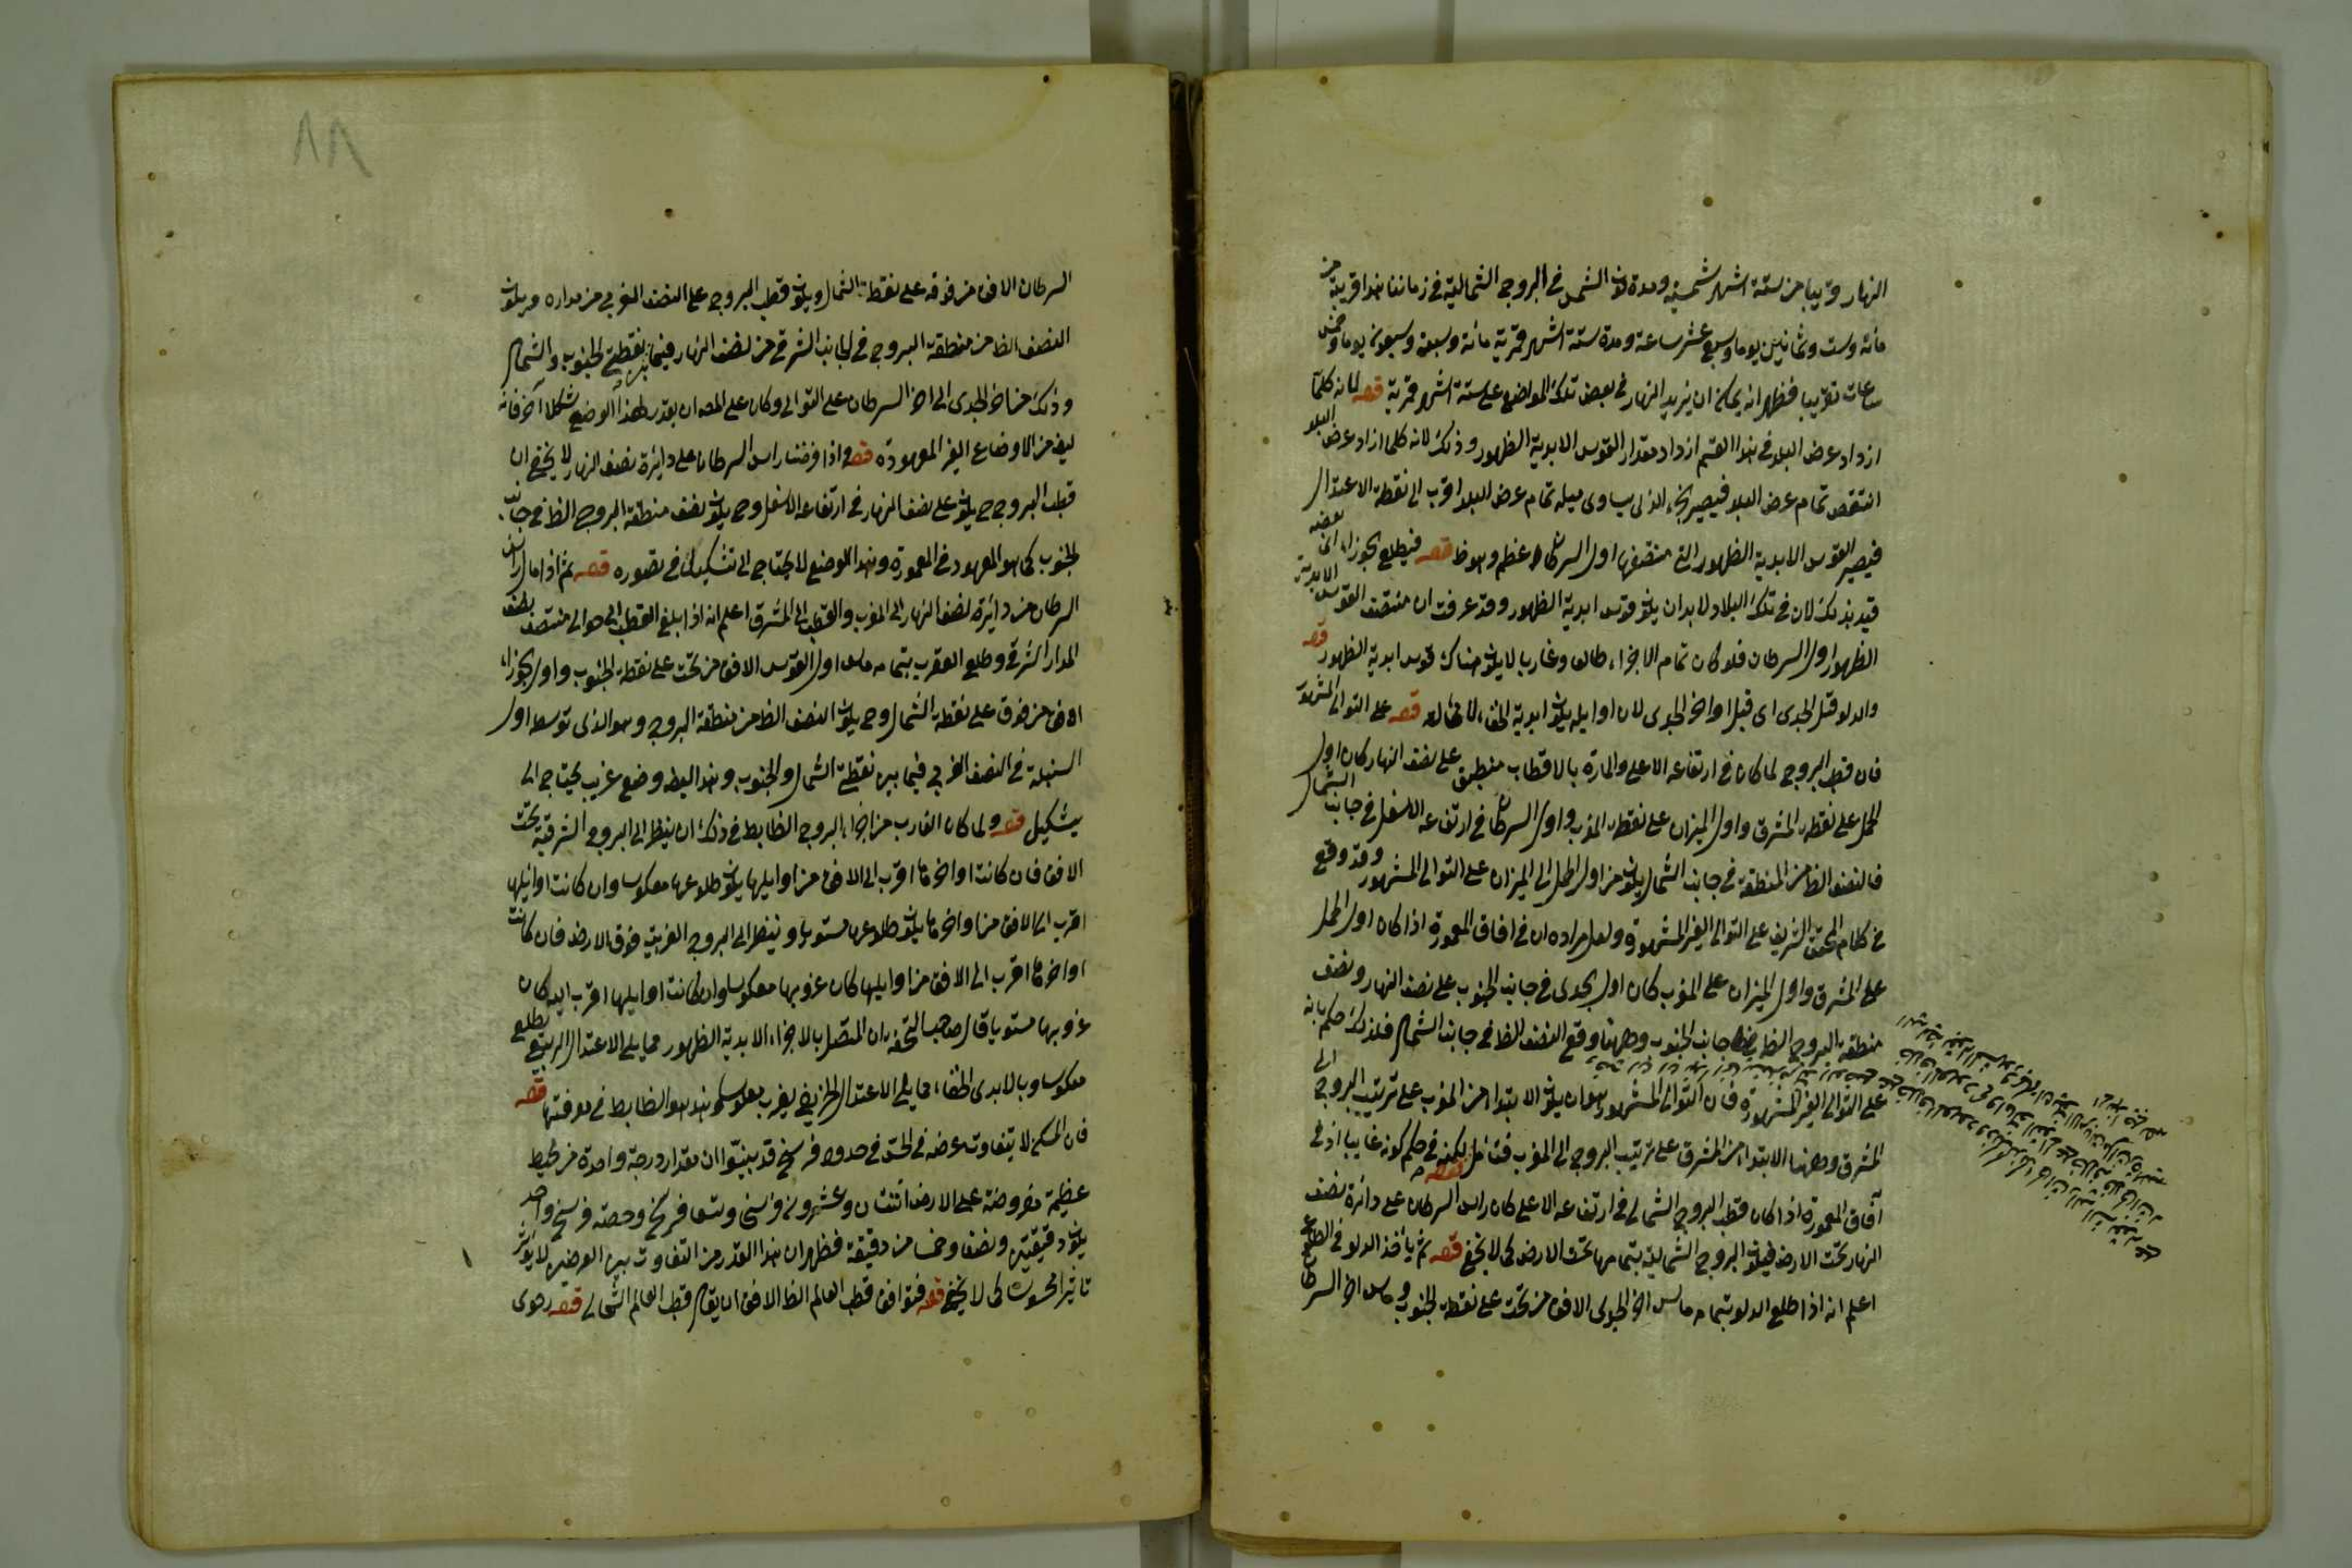 النهار قريبا من ستة اشهر شمسية ومدة كون الشمس في البروج الشمالية في زماننا هذا قريبة من
مائة وست وثمانين يوما وسبع عشر ساعة ومدة ستة اشهر قمرية مائة وسبعة وسبعون يوما وخمس
ساعات تقريبا فظهر انه يمكن ان يزيد النهار في بعض تلك المواضع على ستة اشهر قمرية قوله لانه كلما
ازداد عرض البلد في هذا القسم ازداد مقدار القوس الابدية الظهور وذلك لانه كلما ازداد عرض البلد
انتقص تمام عرض البلد فيصير الجزء الذي يساوي ميله تمام عرض البلد اقرب الى نقطة الاعتدال
فيصير القوس الابدية الظهور التي منتصفها اول السرطان اعظم وهو ظ قوله فيطلع الجوزاء انما
قيد بذلك لان في تلك البلاد لا بد ان يكون قوس ابدية الظهور وقد عرفت ان منتصف القوس الابدية
الظهور اول السرطان فلو كان تمام الاجزاء طالعا وغاربا لا يكون هناك قوس ابدية الظهور قوله
والدلو قبل الجدي اي قبل اواخر الجدي لان اوايله يكون ابدية الخفاء لا طالعة قوله على التوالي المشهور
فان قطب البروج لما كان في ارتفاعه الاعلى والمارة بالاقطاب منطبق على نصف النهار كان اول
الحمل على نقطة المشرق واول الميزان على نقطة المغرب واول السرطان في ارتفاعه الاسفل في جانب الشمال
فالنصف الظ من المنطقة في جانب الشمال يكون من اول الحمل الى الميزان على التوالي المشهور وقد وقع
في كلام المحقق الشريف على التوالي الغير المشهورة ولعل مراده ان في افاق المعمورة اذا كان اول الحمل
على المشرق واول الميزان على المغرب كان اول الجدي في جانب الجنوب على نصف النهار ونصف
منطقة البروج الظ في جانب الجنوب وههنا وقع النصف الظ في جانب الشمال فلذلك حكم بانه
على التوالي الغير المشهورة فان التوالي المشهور هو ان يكون الابتداء من المغرب على ترتيب البروج الى
المشرق وههنا الابتداء من المشرق على ترتيب البروج الى المغرب فتامل قوله لكنه في حكم كونه غايبا اذ في
آفاق المعمورة اذا كان قطب البروج الشمالي في ارتفاعه الاعلى كان راس السرطان على دائرة نصف
النهار تحت الارض فيكون البروج الشمالية بتمامها تحت الارض كما لا يخفى قوله ثم ياخذ الدلو في الطلوع
اعلم انه اذا طلع الدلو بتمامه ماس اخر الجدي الافق من تحت على نقطة الجنوب وماس اخر السرطان
٨٨
السرطان الافق من فوقه على نقطة الشمال ويكون قطب البروج على النصف الغربي من مداره ويكون
النصف الظ من منطقة البروج في الجانب الشرقي من نصف النهار فيما بين نقطتي الجنوب والشمال
وذلك من اخر الجدي الى اخر السرطان على التوالي وكان على المص ان يقدر لهذا الوضع شكلا آخر فانه
ايضا من الاوضاع الغير المعهودة قوله واذا فرضنا راس السرطان على دائرة نصف النهار لا يخفى ان
قطب البروج ح يكون على نصف النهار في ارتفاعه الاسفل وح يكون نصف منطقة البروج الظ في جانب
الجنوب كما هو المعهود في المعمورة وهذا الوضع لا يحتاج الى تشكيل في تصوره قوله ثم اذا مال راس
السرطان من دائرة نصف النهار الى المغرب والقطب الى المشرق اعلم انه اذا بلغ القطب الى حوالي منتصف نصف
المدار الشرقي وطلع العقرب بتمامه ماس اول القوس الافق من تحت على نقطة الجنوب واول الجوزاء
الافق من فوق على نقطة الشمال وح يكون النصف الظ من منطقة البروج وهو الذي توسطه اول
السنبلة في النصف الغربي فيما بين نقطتي الشمال والجنوب وهذا ايضا وضع غريب يحتاج الى
تشكيل قوله ولما كان الغارب من اجزاء البروج الضابط في ذلك ان ينظر الى البروج الشرقية تحت
الافق فان كانت اواخرها اقرب الى الافق من اوايلها يكون طلوعها معكوسا وان كانت اوايلها
اقرب الى الافق من اواخرها يكون طلوعها مستويا وينظر الى البروج الغربية فوق الارض فان كانت
اواخرها اقرب الى الافق من اوايلها كان غروبها معكوسا وان كانت اوايلها اقرب اليه كان
غروبها مستويا قال صاحب التحفة ان المتصل بالاجزاء الابدية الظهور مما يلي الاعتدال الربيعي يطلع
معكوسا وبالابدي الخفاء مما يلي الاعتدال الخريفي يغرب معكوسا هذا هو الضابط في معرفتها قوله
فان المسكن لا يتفاوت عرضه في الحس في حدود فرسخ قد بينوا ان مقدار درجة واحدة من محيط
عظيمة مفروضة على الارض اثنتان وعشرون فرسخا وتسعا فرسخ وحصة فرسخ واحد
يكون دقيقتين ونصفا وخمسا من دقيقة فظهر ان هذا القدر من التفاوت بين العرضين لا يؤثر
تاثيرا محسوسا كما لا يخفى قوله فتوافق قطب العالم الظ الافق ان يقال قطب العالم الشمالي قوله رحوى